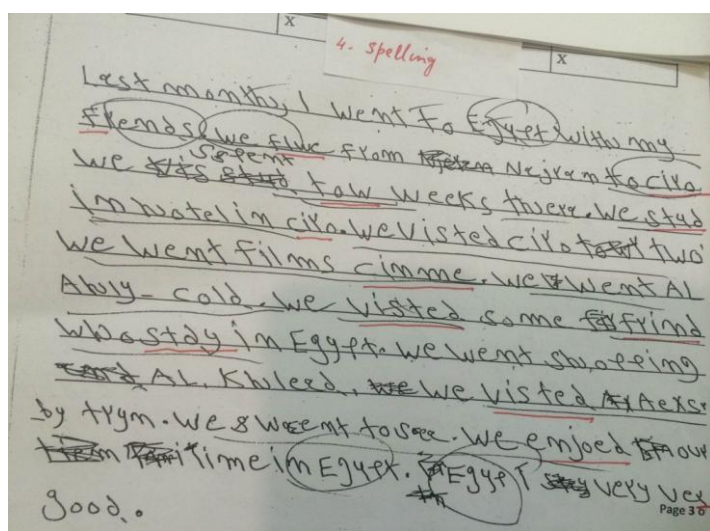 X
4. Spelling
X
Last month, I went to Egypt with my
frends. we flwe from Nejran to ciro
Sepent
We tow weeks there. We stad
in hotel in ciro. We visted ciro two
we went films cimme. We went AL
Ahly-cold. We visted some frind
who stay in Egypt. we went shopping
AL Khleed. We visted Aexs.
by tryn. We went to see. We enjoed our
time in Egypt. Egypt very very
good.
Page 30